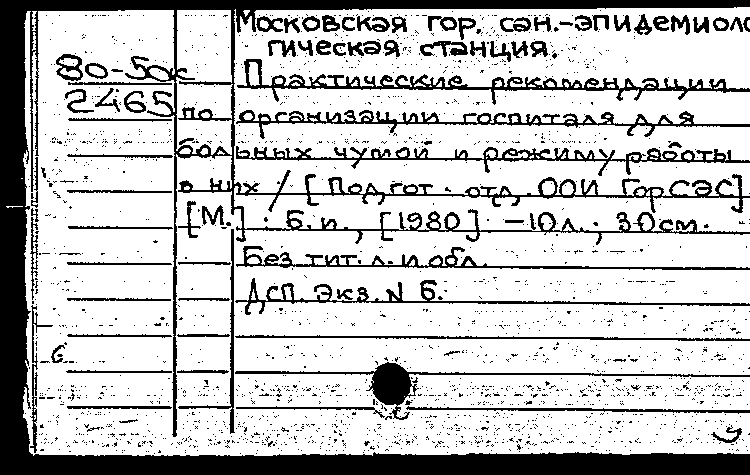 Московская гор. сан.-эпидемиоло
гическая станция.
80-50к Практические рекомендации
2465 по организации госпиталя для
больных чумой и режиму работы
в них / [Подгот. отд. ООИ Гор.СЭС]
[М.] : Б.и., [1980] -10л.; 30см.
Без тит. л. и обл.
ДСП. Экз. N Б.